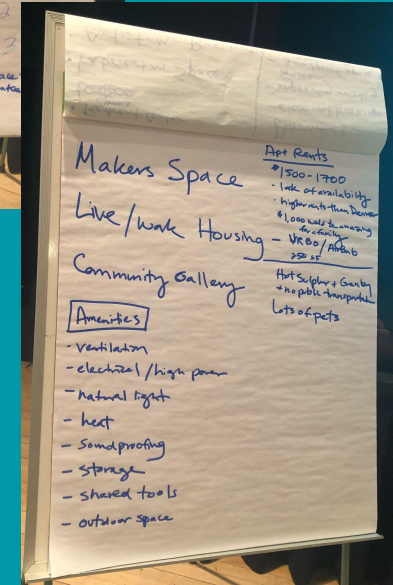 Makers Space
Live/Work Housing
Community Gallery
Amenities
- ventilation
- electrical/high power
- natural light
- heat
- soundproofing
- storage
- shared tools
- outdoor space
Apt Rents
$1500-1700
- lack of availability
- higher rents than Denver
$1,000 would be amazing
for a family
- VRBO/Airbnb
250 SF
Hot Sulphur + Granby
+ no public transportation
Lots of pets